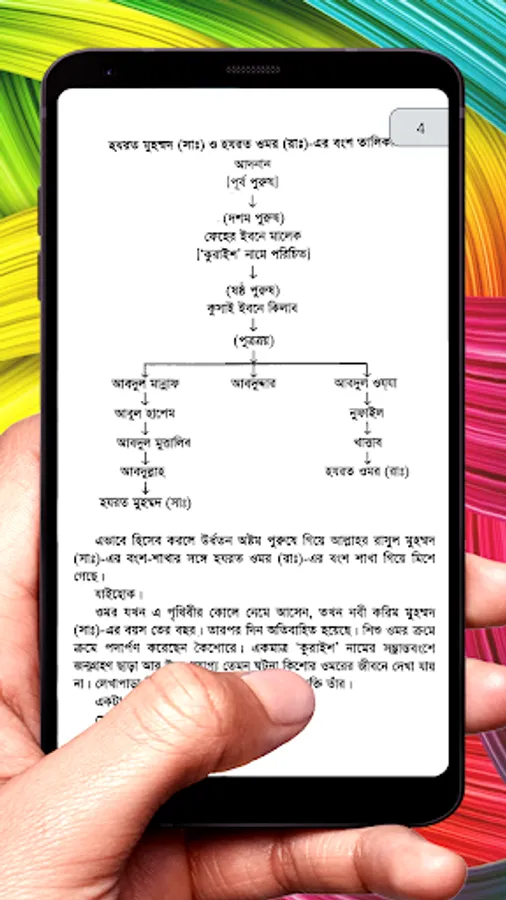 4
হযরত মুহম্মদ (সাঃ) ও হযরত ওমর (রাঃ)-এর বংশ তালিকা
আদনান
[পূর্ব পুরুষ]
↓
(দশম পুরুষ)
ফেহের ইবনে মালেক
['কুরাইশ' নামে পরিচিত]
↓
(ষষ্ঠ পুরুষ)
কুসাই ইবনে কিলাব
↓
(পুত্রত্রয়)
আবদুল মান্নাফ আবদুদ্দার আবদুল ওয্যা
আবুল হাশেম নুফাইল
আবদুল মুত্তালিব খাত্তাব
আবদুল্লাহ হযরত ওমর (রাঃ)
হযরত মুহম্মদ (সাঃ)
এভাবে হিসেব করলে উর্ধ্বতন অষ্টম পুরুষে গিয়ে আল্লাহর রাসুল মুহম্মদ
(সাঃ)-এর বংশ-শাখার সঙ্গে হযরত ওমর (রাঃ)-এর বংশ শাখা গিয়ে মিশে
গেছে।
যাইহোক।
ওমর যখন এ পৃথিবীর কোলে নেমে আসেন, তখন নবী করিম মুহম্মদ
(সাঃ)-এর বয়স তের বছর। তারপর দিন অতিবাহিত হয়েছে। শিশু ওমর ক্রমে
ক্রমে পদার্পণ করেছেন কৈশোরে। একমাত্র 'কুরাইশ' নামের সম্ভ্রান্তবংশে
জন্মগ্রহণ ছাড়া আর তেমন ঘটনা কিশোর ওমরের জীবনে দেখা যায়
না। লেখাপড়া তাঁর।
একটা